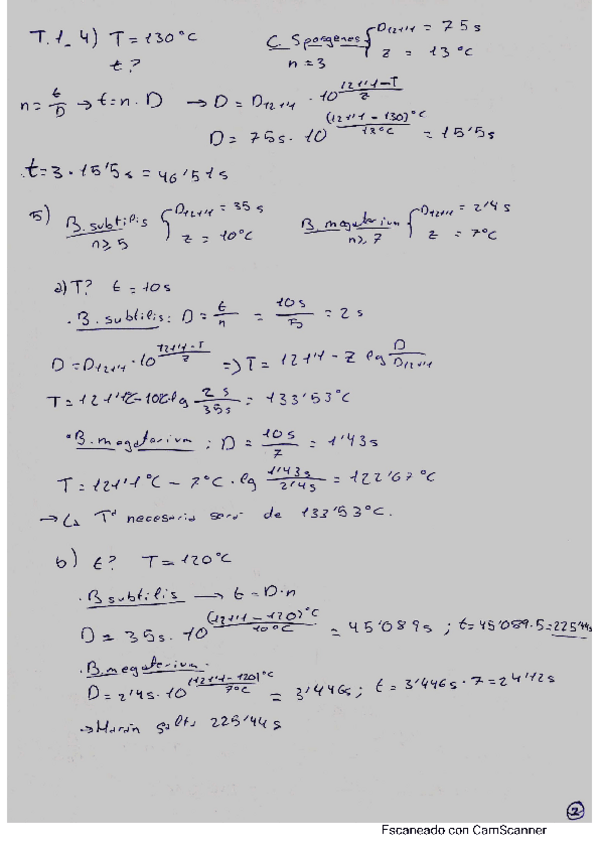 T.1_4) T = 130ºC C. Sporgenes { D121'1 = 75s
t? n = 3 z = 13ºC
n = t/D → t = n · D → D = D121'1 · 10^(121'1-T)/z
D = 75s · 10^(121'1 - 130)ºC/13ºC = 15'5s
t = 3 · 15'5s = 46'51s
5) B. subtilis { D121'1 = 35s B. megatarium { D121'1 = 2'4s
n ≥ 5 z = 10ºC n ≥ 7 z = 7ºC
a) T? t = 10s
· B. subtilis: D = t/n = 10s/5 = 2s
D = D121'1 · 10^(121'1-T)/z => T = 121'1 - z lg D/D121'1
T = 121'1ºC - 10ºC · lg 2s/35s = 133'53ºC
· B. megatarium: D = 10s/7 = 1'43s
T = 121'1ºC - 7ºC · lg 1'43s/2'4s = 122'67ºC
→ La Tª necesaria será de 133'53ºC.
b) t? T = 120ºC
· B subtilis → t = D·n
D = 35s · 10^(121'1 - 120)ºC/10ºC = 45'089s ; t = 45'089·5 = 225'44s
· B. megatarium.
D = 2'4s · 10^(121'1 - 120)ºC/7ºC = 3'446s ; t = 3'446s · 7 = 24'12s
→ Harán falta 225'44s
2
Escaneado con CamScanner